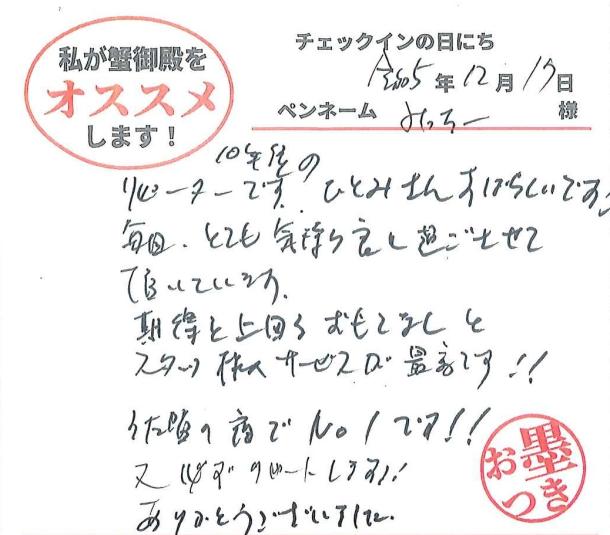 私が蟹御殿を
オススメ
します！
チェックインの日にち
令和5年12月17日
ペンネーム みっちー 様
10年経の
リピーターです。ひとみさんすばらしいです。
毎回、とても気持ち良く過ごさせて
頂いています。
期待を上回るおもてなしと
スタッフ様のサービスが最高です!!
宿でNo1です!!
又必ずリピートします!
ありがとうございました。
お墨つき